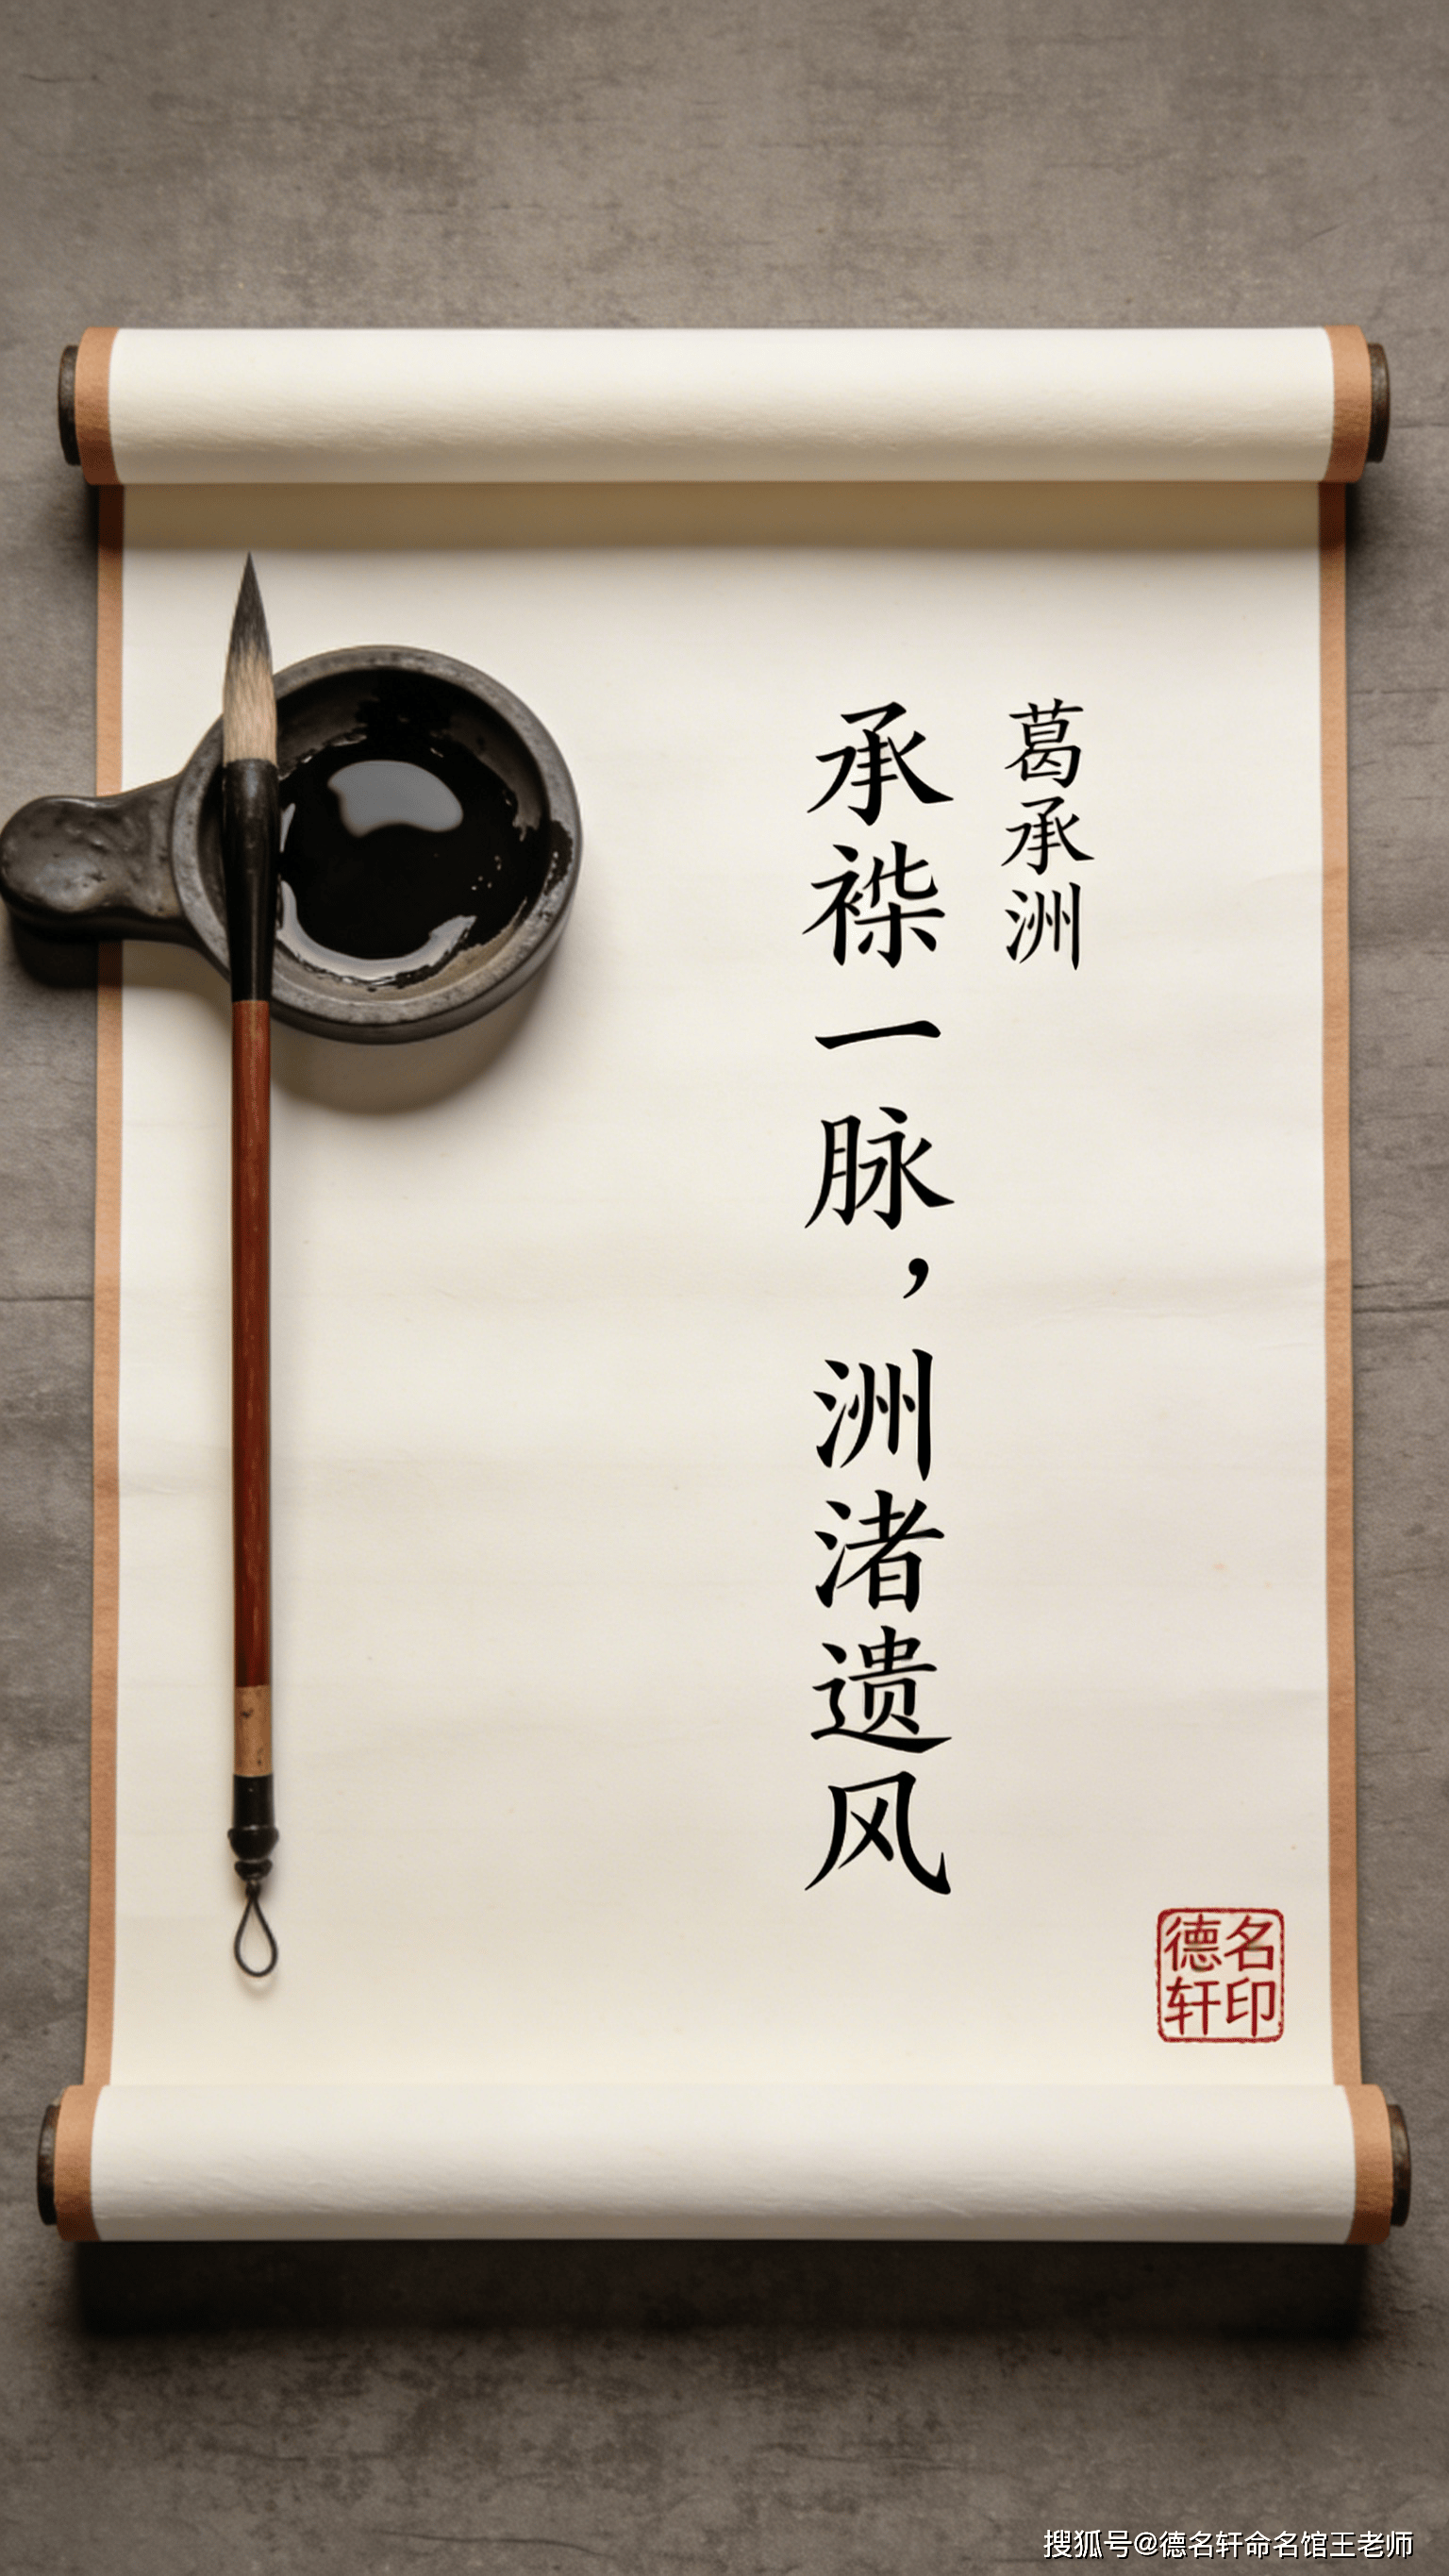 葛承洲
承一脉，洲渚遗风
德名
轩印
搜狐号@德名轩命名馆王老师